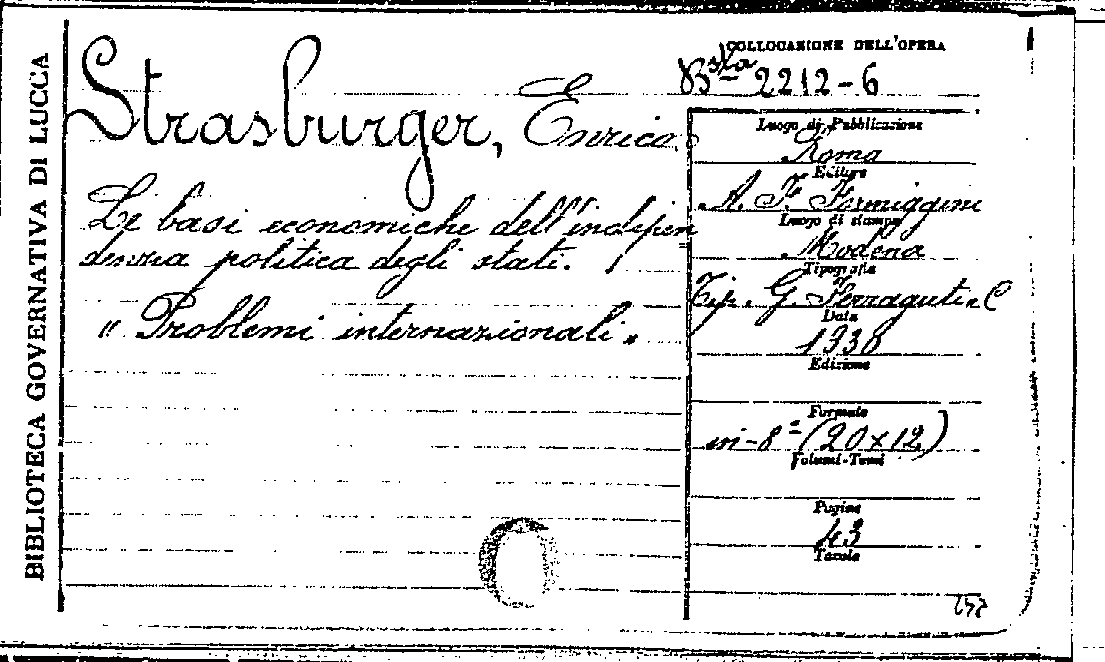 BIBLIOTECA GOVERNATIVA DI LUCCA
COLLOCAZIONE DELL'OPERA
Bsta 2212-6
Strasburger, Enrico
Le basi economiche dell'indipen
denza politica degli stati.
"Problemi internazionali"
Luogo di Pubblicazione
Roma
Editore
A. F. Formiggini
Luogo di stampa
Modena
Tipografia
Tip. G. Ferraguti e C
Data
1930
Edizione
Formato
in-8º (20x12)
Volumi-Tomi
Pagine
43
Tavole